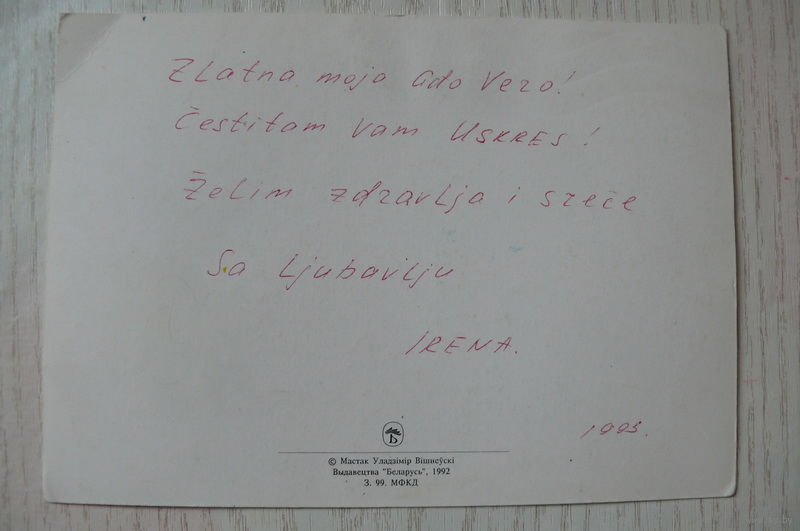 Zlatna moja Ado Vero!
Čestitam Vam USKRES!
Želim zdravlja i sreče
Sa ljubavlju
IRENA.
1993.
Б
© Мастак Уладзімір Вішнеўскі
Выдавецтва "Беларусь", 1992
З. 99. МФКД